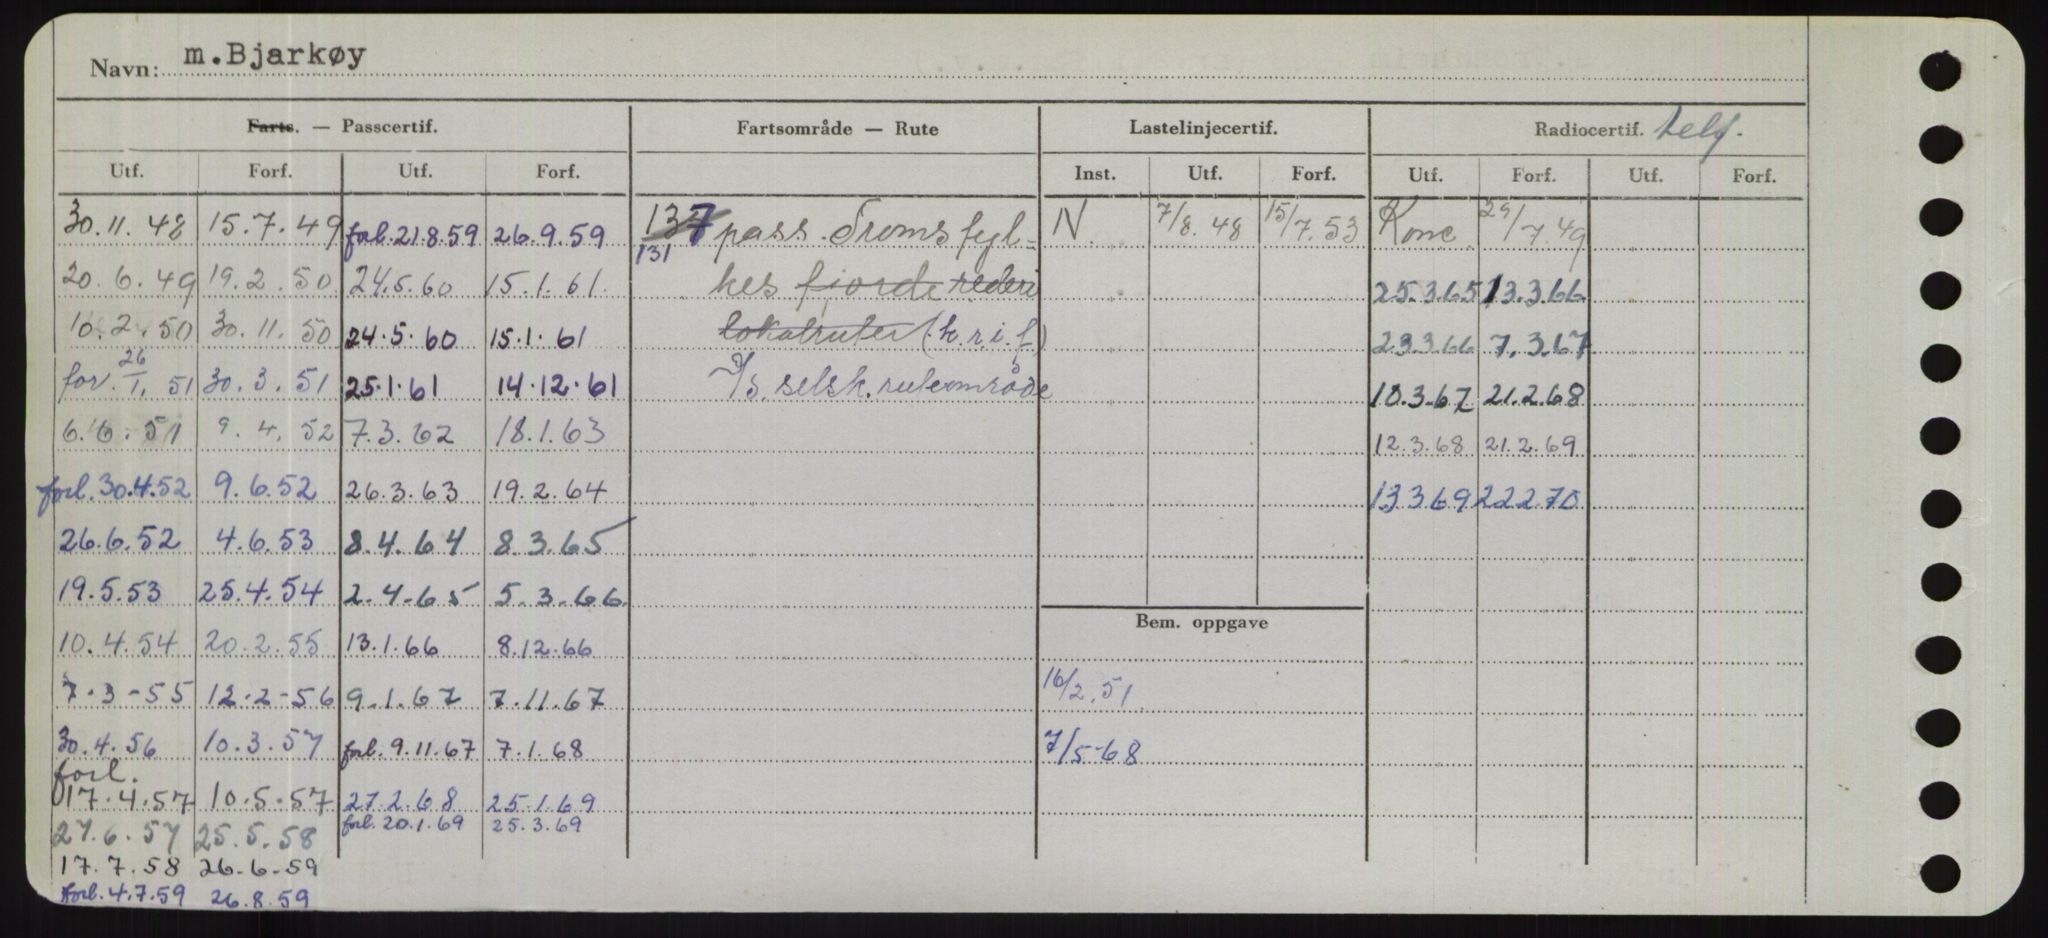 Navn: m.Bjarkøy
Farts. — Passcertif. Fartsområde — Rute Lastelinjecertif. Radiocertif. telf.
Utf. Forf. Utf. Forf. Inst. Utf. Forf. Utf. Forf. Utf. Forf.
30.11.48 15.7.49 forl.21.8.59 26.9.59 137 pass. Troms fyl= N 7/8.48 15/7.53 Konc 29/7.49
131
20.6.49 19.2.50 24.5.60 15.1.61 kes fjorde rederi 25.3.65 13.3.66
10.2.50 30.11.50 24.5.60 15.1.61 lokalruter (k.r.i.f.) 23.3.66 7.3.67
for. 26/1.51 30.3.51 25.1.61 14.12.61 I/s. selsk. ruteområde 10.3.67 21.2.68
6.6.51 9.4.52 7.3.62 18.1.63 12.3.68 21.2.69
forl.30.4.52 9.6.52 26.3.63 19.2.64 13369 22270
26.6.52 4.6.53 8.4.64 8.3.65
19.5.53 25.4.54 2.4.65 5.3.66
Bem. oppgave
10.4.54 20.2.55 13.1.66 8.12.66
7.3-55 12.2-56 9.1.67 7.11.67 16/2.51
30.4.56 10.3.57 forl.9.11.67 7.1.68 7/5-68
forl.
17.4.57 10.5.57 27.2.68 25.1.69
27.6.57 25.5.58 forl.20.1.69 25.3.69
17.7.58 26.6.59
forl.4.7.59 26.8.59